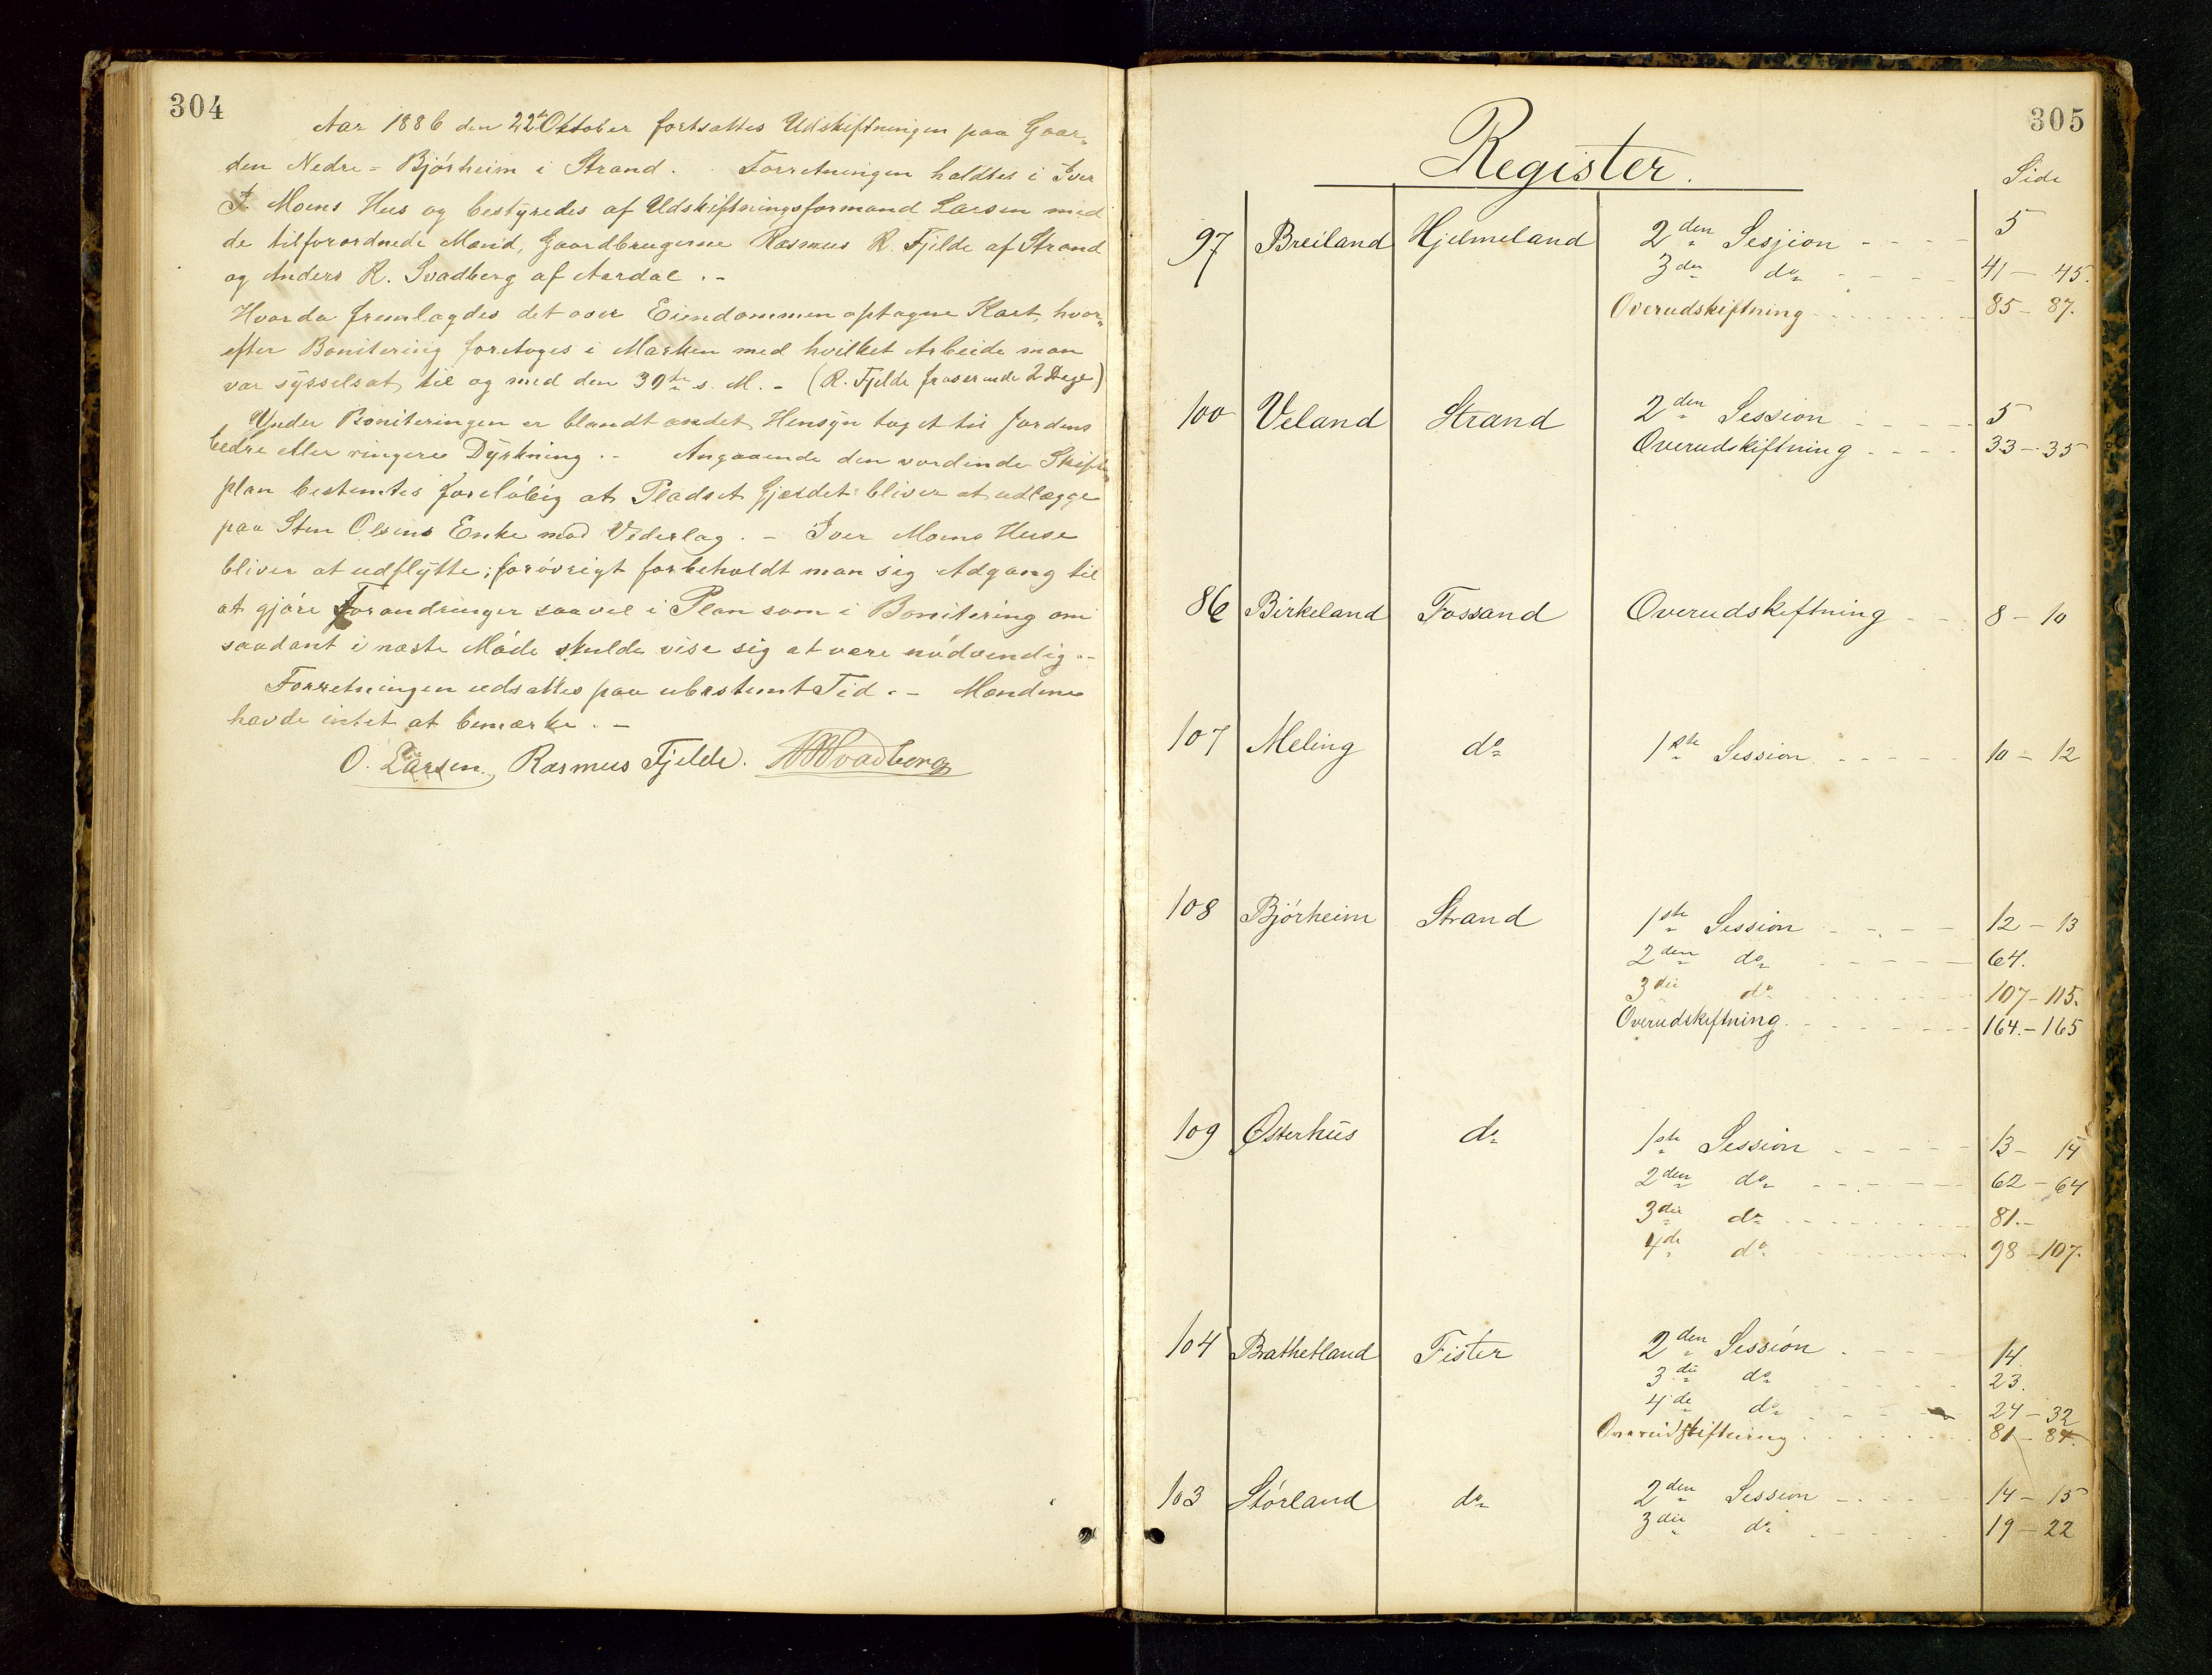 304
Aar 1886 den 22de Oktober fortsattes Udskiftningen paa Gaar„
den Nedre = Bjórheim i Strand. Forretningen holdtes i Iver
T. Moens Hus og bestyredes af Udskiftningsformand Larsen med
de tilforordnede Mænd, Gaardbrugerne Rasmus R. Fjelde af Strand
og Anders R. Svadberg af Aardal. -
Hvorda fremlagdes det over Eiendommen optagne Kart, hvor„
efter Bonitering foretoges i Marken med hvilket Arbeide man
var sysselsat til og med den 30te s. M. - (R. Fjelde fraværende 2 Dage)
Under Boniteringen er blandt andet Hensyn taget til Jordens
bedre eller ringere Dyrkning. - Angaaende den vordende Skifte
plan bestemtes foreløbig at Pladset Gjærdet bliver at udlægge
paa Sten Olsens Enke mod Vederlag. - Iver Moens Huse
bliver at udflytte; forøvrigt forbeholdt man sig Adgang til
at gjøre Forandringer saavel i Plan som i Bonitering om
saadant i næste Møde skulde vise sig at være nødvendig. -
Forretningen udsattes paa ubestemt Tid. - Mændene
havde intet at bemærke. -
O. Larsen. Rasmus Fjelde. ARSvadberg
305
Register.
Side
97 Breiland Hjelmeland 2den Sesjion 5
3die do 41 - 45.
Overudskiftning 85 - 87.
100 Veland Strand 2den Session 5
Overudskiftning 33 - 35
86 Birkeland Fossand Overudskiftning 8 - 10
107 Meling do 1ste Session 10 - 12
108 Bjórheim Strand 1ste Session 12 - 13
2den do 64.
3die do 107 - 115.
Overudskiftning 164. - 165
109 Østerhus do 1ste Session 13 - 14
2den do 62 - 64
3die do 81. -
4de do 98 - 107.
104 Brathetland Fister 2den Session 14.
3die do 23.
4de do 24 - 32
Overudskiftning 81 - 84.
103 Stórland do 2den Session 14 - 15
3die do 19 - 22